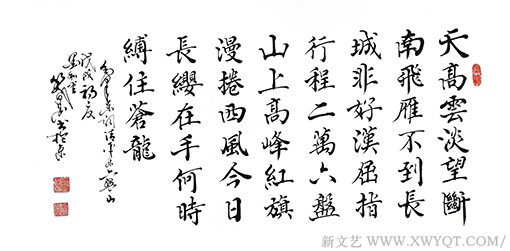 天高雲淡望斷
南飛雁不到長
城非好漢屈指
行程二萬六盤
山上高峰紅旗
漫捲西風今日
長纓在手何時
縛住蒼龍
六盤山
戊戌初夏
新文艺 — WWW.XWYQT.COM